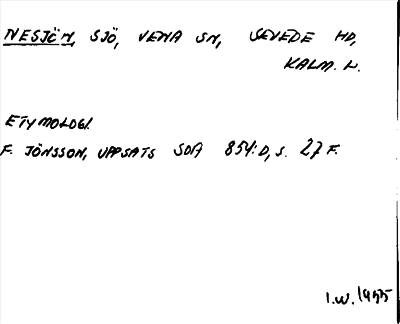 NESJÖN, SJÖ, VENA SN, SEVEDE HD,
KALM. L.
ETYMOLOGI.
F. JÖNSSON, UPPSATS SOA 854:D, S. 27 F.
I.W. 1955